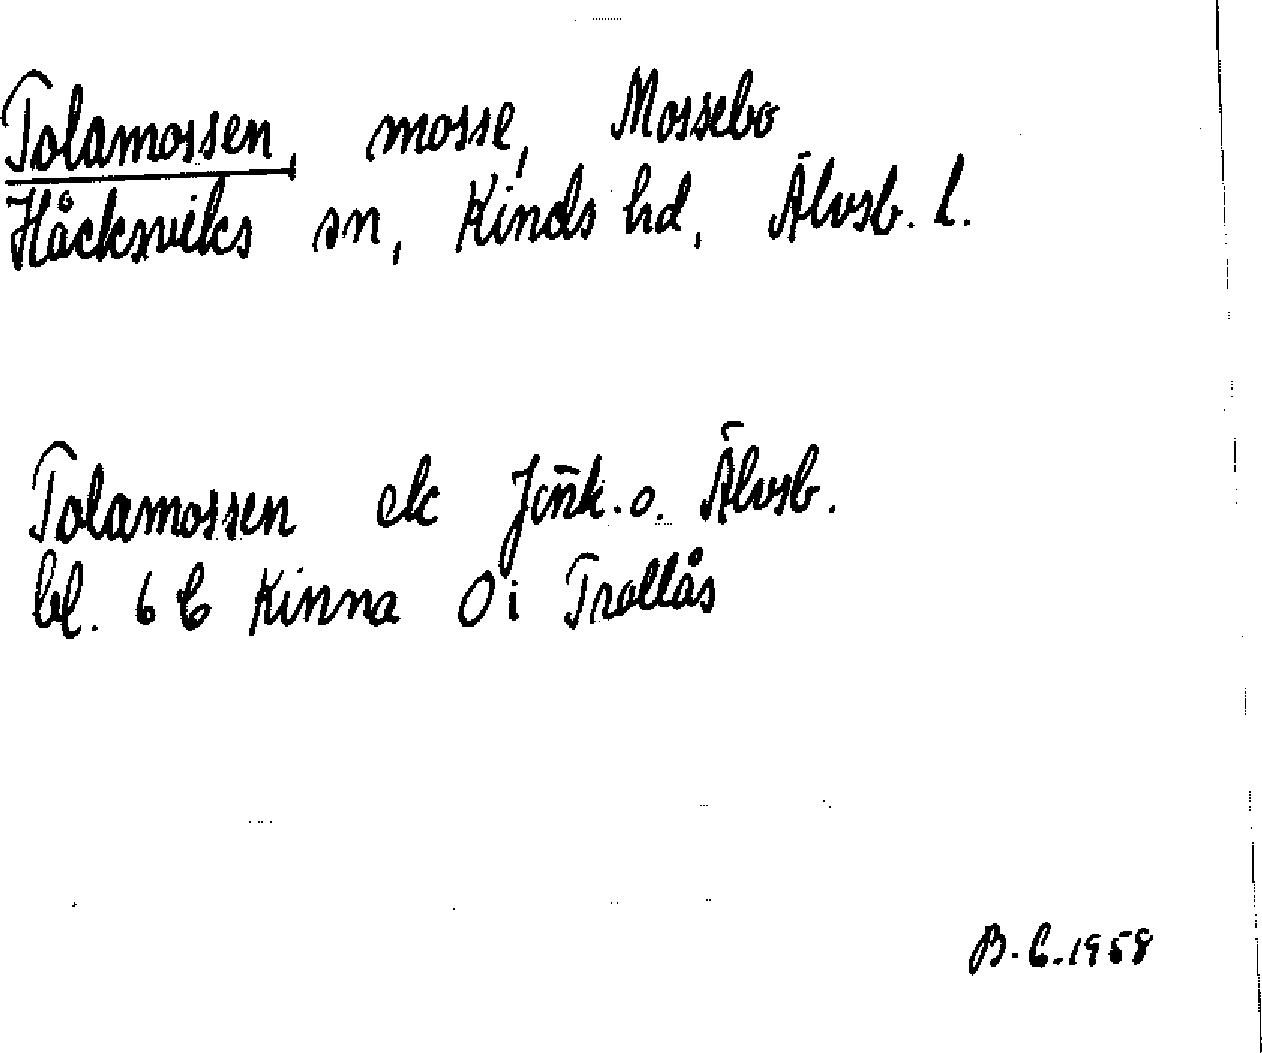 Tolamossen, mosse, Mossebo
Håcksviks sn, Kinds hd, Älvsb. l.
Tolamossen ek Jönk. o. Älvsb.
bl. 6 C Kinna 0 i Trollås
B. C. 1958